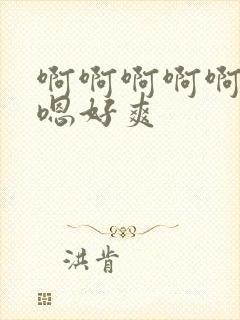 啊啊啊啊啊
嗯好爽
洪肯